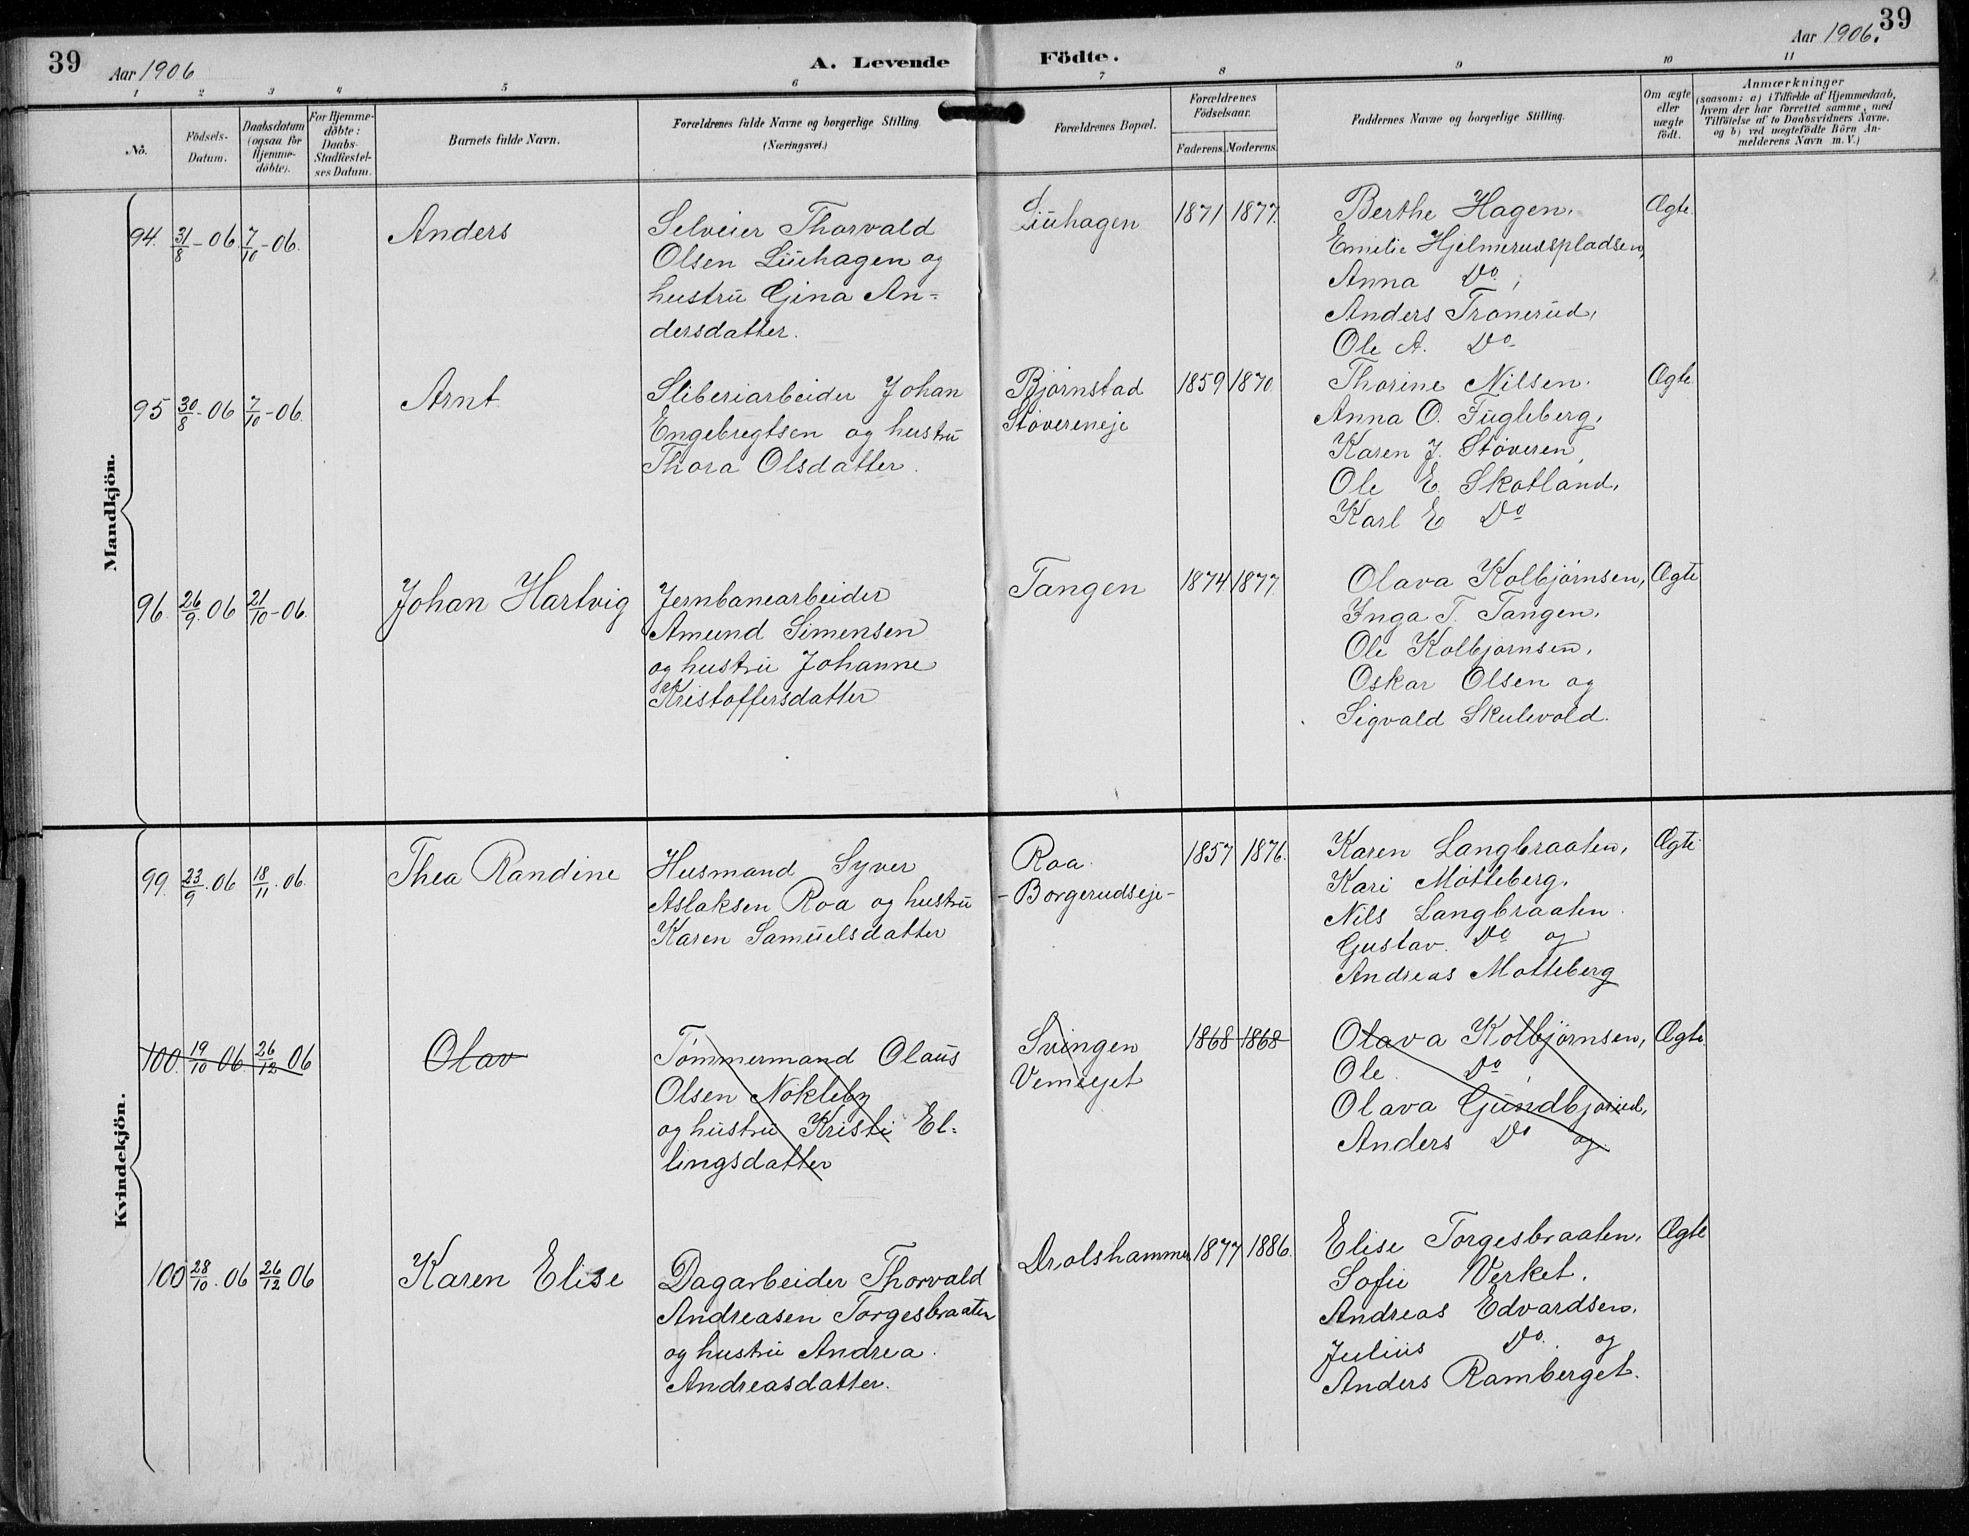 39
Aar 1906
A. Levende
Födte.
Aar 1906.
39
1 2 3 4 5 6 7 8 9 10 11
No.
Födsels-
Datum.
Daabsdatum
(ogsaa for
Hjemme-
döbte).
For Hjemme-
döbte:
Daabs-
Stadfæstel-
ses Datum.
Barnets fulde Navn.
Forældrenes fulde Navne og borgerlige Stilling.
(Næringsvei.)
Forældrenes Bopæl.
Forældrenes
Födselsaar.
Faderens. Moderens.
Faddernes Navne og borgerlige Stilling.
Om ægte
eller
uægte
födt.
Anmærkninger
(saasom: a) i Tilfælde af Hjemmedaab,
hvem der har forrettet samme, med
Tilföielse af to Daabsvidners Navne,
og b) ved uægtefödte Börn An-
melderens Navn m. V.)
Mandkjön.
94. 31/8 - 06. 7/10 - 06.
Anders
Selveier Thorvald
Olsen Liuhagen og
hustru Gina An=
dersdatter.
Liuhagen
1871 1877.
Berthe Hagen,
Emilie Hjelmerudspladsen,
Anna Do,
Anders Tronerud,
Ole A. Do
Ægte.
95 30/8 - 06 7/10 - 06.
Arnt
Sliberiarbeider Johan
Engebregtsen og hustru
Thora Olsdatter.
Bjørnstad
Støvereneje
1859 1870
Thorine Nilsen.
Anna O. Fugleberg,
Karen J. Støveren,
Ole E. Skotland,
Karl E Do
Ægte.
96. 26/9. 06 21/10 - 06.
Johan Hartvig
Jernbanearbeider
Amund Simensen
og hustru Johanne
Kristoffersdatter
Tangen
1874. 1877.
Olava Kolbjørnsen,
Inga T. Tangen,
Ole Kolbjørnsen,
Oskar Olsen og
Sigvald Skulevold.
Ægte
Kvindekjön.
99. 23/9. 06 18/11. 06.
Thea Randine
Husmand Syver
Aslaksen Roa og hustru
Karen Samuelsdatter
Roa.
- Borgerudseje -
1857 1876.
Karen Langbraaten,
Kari Motteberg,
Nils Langbraaten.
Gustav. Do og
Andreas Motteberg
Ægte
100. 19/10 06 26/12 06
Olav
Tømmermand Olaus
Olsen Nøkleby
og hustru Kristi El=
lingsdatter
Svingen
Vemeiet
1868 1868
Olava Kolbjørnsen,
Ole. Do,
Olava Gundbjørud,
Anders Do og
Ægte
100 28/10. 06 26/12 06
Karen Elise
Dagarbeider Thorvald
Andreasen Torgesbraaten
og hustru Andrea
Andreasdatter.
Drolshammer
1877 1886.
Elise Torgesbraaten,
Sofie Verket,
Andreas Edvardsen,
Julius Do. og
Anders Ramberget.
Ægte